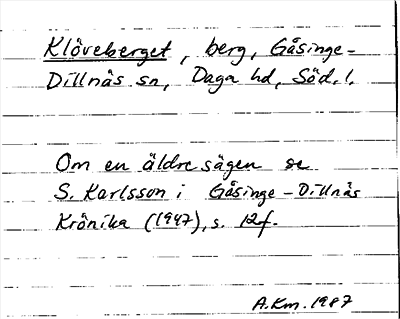 Klöveberget, berg, Gåsinge-
Dillnäs sn, Daga hd, Söd.l.
Om en äldre sägen se
S. Karlsson i Gåsinge-Dillnäs
Krönika (1947), s. 12f.
A.Km. 1987